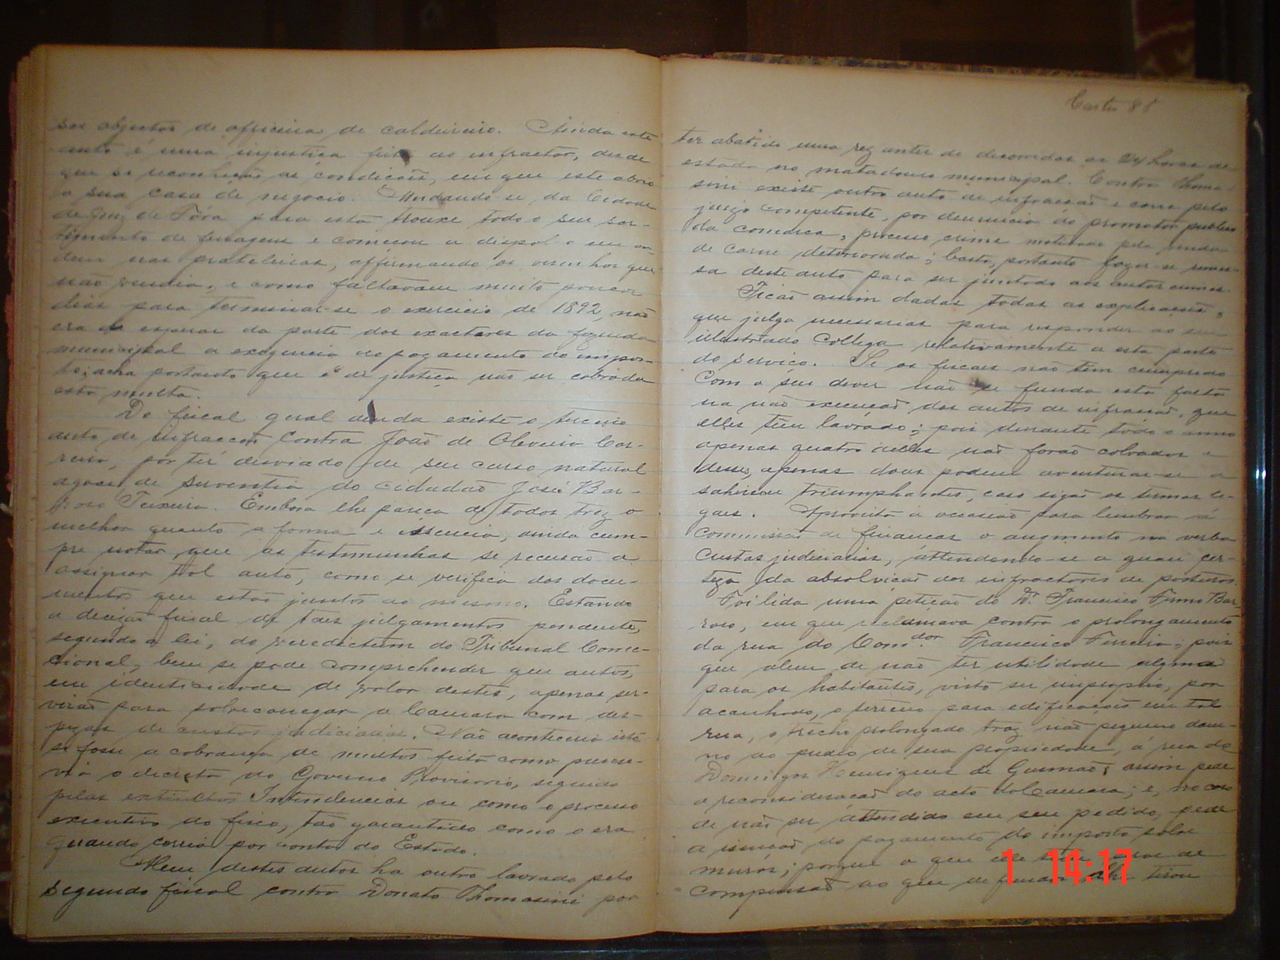 ser objectos de officina de caldeireiro. Ainda este
auto é uma injustiça feita ao infractor, desde
que se reconheção as condições, em que este abrio
a sua casa de negocio. Mudando-se da Cidade
de Juiz de Fóra para esta trouxe todo o seu sor-
timento de ferragem e começou a dispol-o
nas prateleiras, affirmando
não vendia, e como faltavam muito poucos
dias para terminar-se o exercicio de 1892, não
era de esperar da parte dos exactores da fazenda
municipal a exigencia do pagamento do impos-
to; acha portanto que é de justiça não ser cobrada
esta multa.
Do fiscal geral ainda existe o terceiro
auto de infracção contra João de Oliveira Cor-
reia, por ter desviado de seu curso natural
agoas de serventia do cidadão José Bar-
roso Teixeira. Embora lhe pareça de todos traz o
melhor quanto a forma e essencia, ainda cum-
pre notar que as testimunhas se recusão a
assignar tal auto, como se verifica dos docu-
mentos que estão juntos ao mesmo. Estando
a decisão final de taes julgamentos pendente,
segundo a lei, do veredictum do Tribunal Corre-
cional, bem se pode comprehender que autos,
em identicidade de valor destes, apenas ser-
virão para sobrecarregar a Camara com des-
pezas de custas judiciarias. Não aconteceria isto
se fosse a cobrança de multas feita como prescre-
via o decreto do Governo Provisorio, seguido
pelas extinctas Intendencias ou como o processo
executivo do fisco, tão garantido como o era
quando corria por conta do Estado.
Alem destes autos ha outro lavrado pelo
segundo fiscal contra Donato Thomasini por
ter abatido uma rez antes de decorridas as 24 horas de
estado no matadouro municipal. Contra Thoma-
sini existe outro auto de infracção e corre pelo
juizo competente, por denuncia do promotor publico
da comarca, processo crime motivado pela venda
de carne deteriorada; basta, portanto fazer-se remes-
sa deste auto para ser juntado aos autos crimes.
Ficão assim dadas todas as explicações,
que julga necessarias para responder ao seu
illustrado collega relativamente a esta parte
do serviço. Se os fiscaes não têm cumprido
com o seu dever não se funda esta falta
na não execução dos autos de infracção, que
elles tem lavrado; pois durante todo o anno
apenas quatro delles não forão cobrados e
desses apenas dous podem aventurar-se a
sahirem triumphantes, caso sigão os termos le-
gaes. Aproveita a occasião para lembrar á
Commissão de finanças o augmento na verba
custas judiciarias, attendendo-se a quasi cer-
teza da absolvição dos infractores de posturas.
Foi lida uma petição do Dr. Francisco Firmo Bar-
roso, em que reclamava contra o prolongamento
da rua do Com.dor Francisco Ferreira; pois
que alem de não ter utilidade alguma
para os habitantes, visto ser improprio, por
acanhado, o terreno para edificações em tal
rua, o trecho prolongado traz não pequeno dam-
no ao predio de sua propriedade, á rua de
Domingos Henriques de Gusmão; assim pede
a reconsideração do acto da Camara; e, no caso
de não ser attendido em seu pedido, pede
a isenção do pagamento do imposto sobre
muros; porque o que
compensão ao que lhe tirou
1 14:17